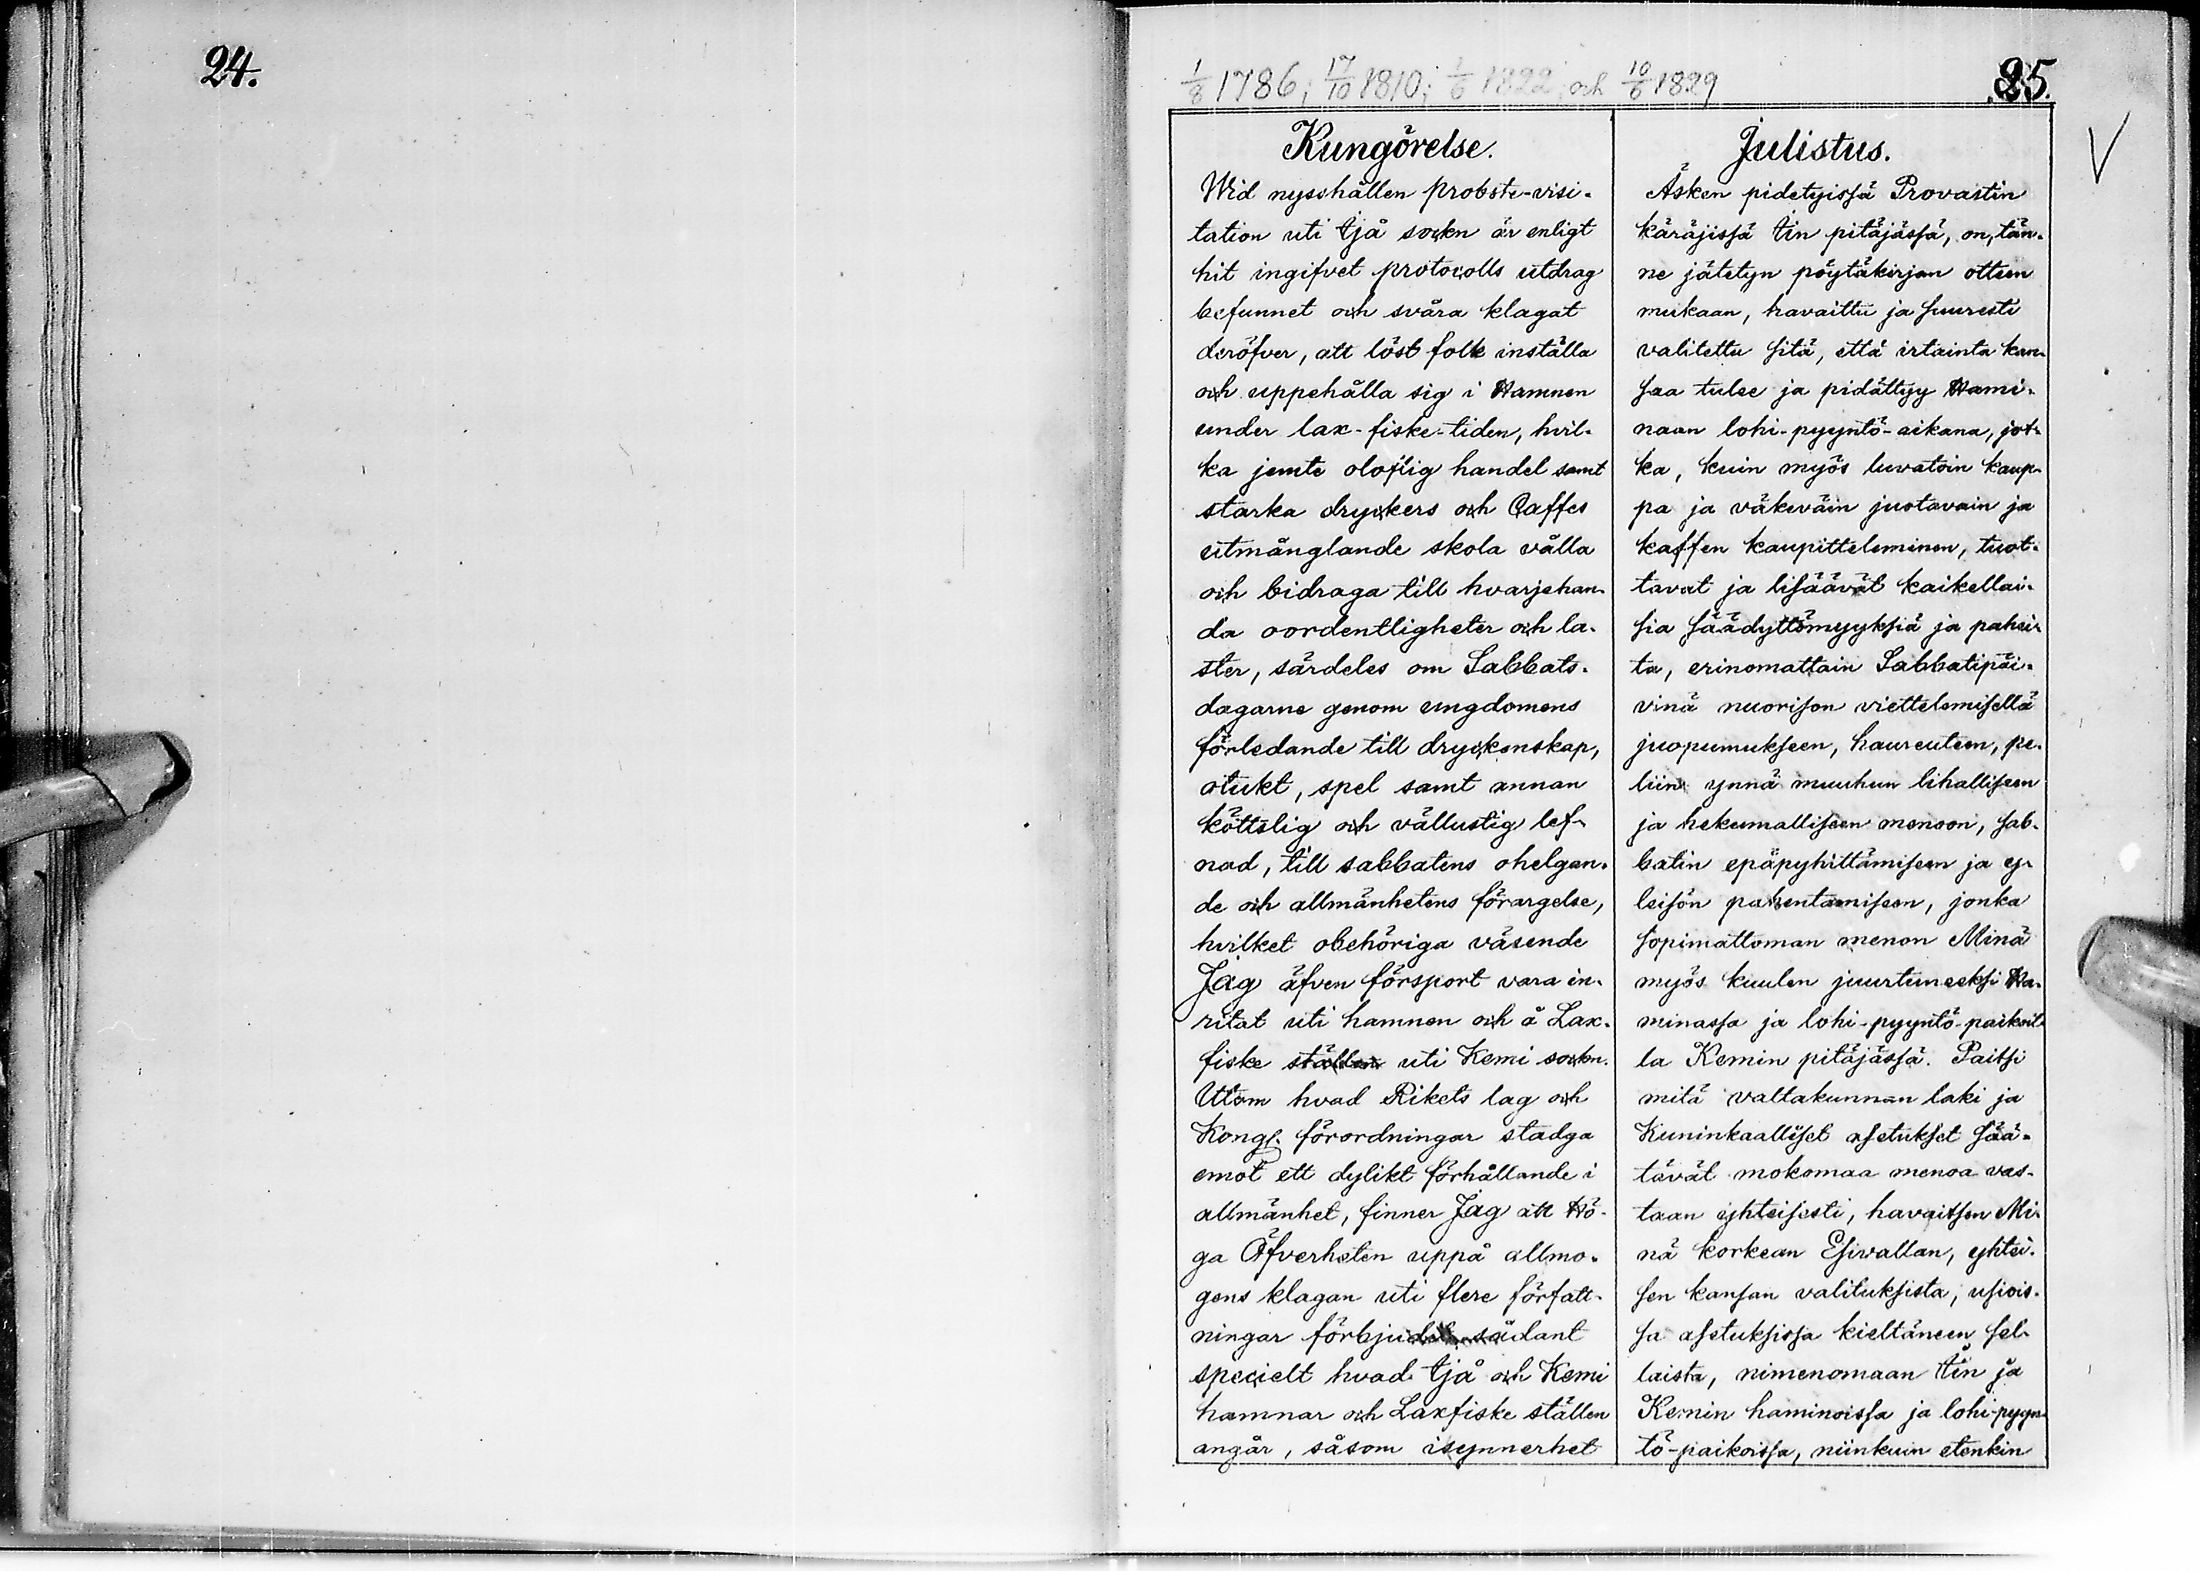 24.
1/8 1786; 17/10 1810; 1/6 1822 och 10/6 1829
25.
V
Kungörelse.
Wid nysshållen probste-visi-
tation uti Ijå sockn är enligt
hit ingifvet protocolls utdrag
befunnet och svåra klagat
deröfver, att löst folk inställa
och uppehålla sig i Hamnen
under lax-fiske-tiden, hvil-
ka jemte oloflig handel samt
starka dryckers och Caffes
utmånglande skola vålla
och bidraga till hvarjehan-
da oordentligheter och la-
ster, särdeles om Sabbats-
dagarne genom ungdomens
förledande till dryckenskap,
otukt, spel samt annan
köttslig och vällustig lef-
nad, till sabbatens ohelgan-
de och allmänhetens förargelse,
hvilket obehöriga väsende
Jag äfven försport vara in-
ritat uti hamnen och å Lax-
fiske ställen uti Kemi sockn.
Utom hvad Rikets lag och
Kongl. förordningar stadga
emot ett dylikt förhållande i
allmänhet, finner Jag att Hö-
ga Öfverheten uppå allmo-
gens klagan uti flere författ-
ningar förbjudit sådant
specielt hvad Ijå och Kemi
hamnar och Laxfiske ställen
angår, såsom isynnerhet
Julistus.
Äsken pidetyisſä Provastin
käräjisſä Iin pitäjäsſä, on, tän-
ne jätetyn pöytäkirjan otteen
mukaan, havaittu ja ſuuresti
valitettu ſitä, että irtainta kan-
ſaa tulee ja pidättyy Hami-
naan lohi-pyyntö-aikana, jot-
ka, kuin myös luvatoin kaup-
pa ja väkeväin juotavain ja
kaffen kaupitteleminen, tuot-
tavat ja liſäävät kaikellai-
ſia ſäädyttömyykſiä ja pahei-
ta, erinomattain Sabbatipäi-
vinä nuoriſon viettelemiſellä
juopumukſeen, haureuteen, pe-
liin ynnä muuhun lihalliſeen
ja hekumalliſeen menoon, ſab-
batin epäpyhittämiſeen ja y-
leiſön pahentamiſeen, jonka
ſopimattoman menon Minä
myös kuulen juurtuneekſi Ha-
minasſa ja lohi-pyyntö-paikoil-
la Kemin pitäjäsſä. Paitſi
mitä valtakunnan laki ja
Kuninkaalliſet aſetukſet ſää-
tävät mokomaa menoa vas-
taan yhteiſesti, havaitſen Mi-
nä korkean Eſivallan, yhtei-
ſen kanſan valitukſista, uſiois-
ſa aſetukſisſa kieltäneen ſel-
laista, nimenomaan Iin ja
Kemin haminoisſa ja lohi-pyyn-
tö-paikoisſa, niinkuin etenkin